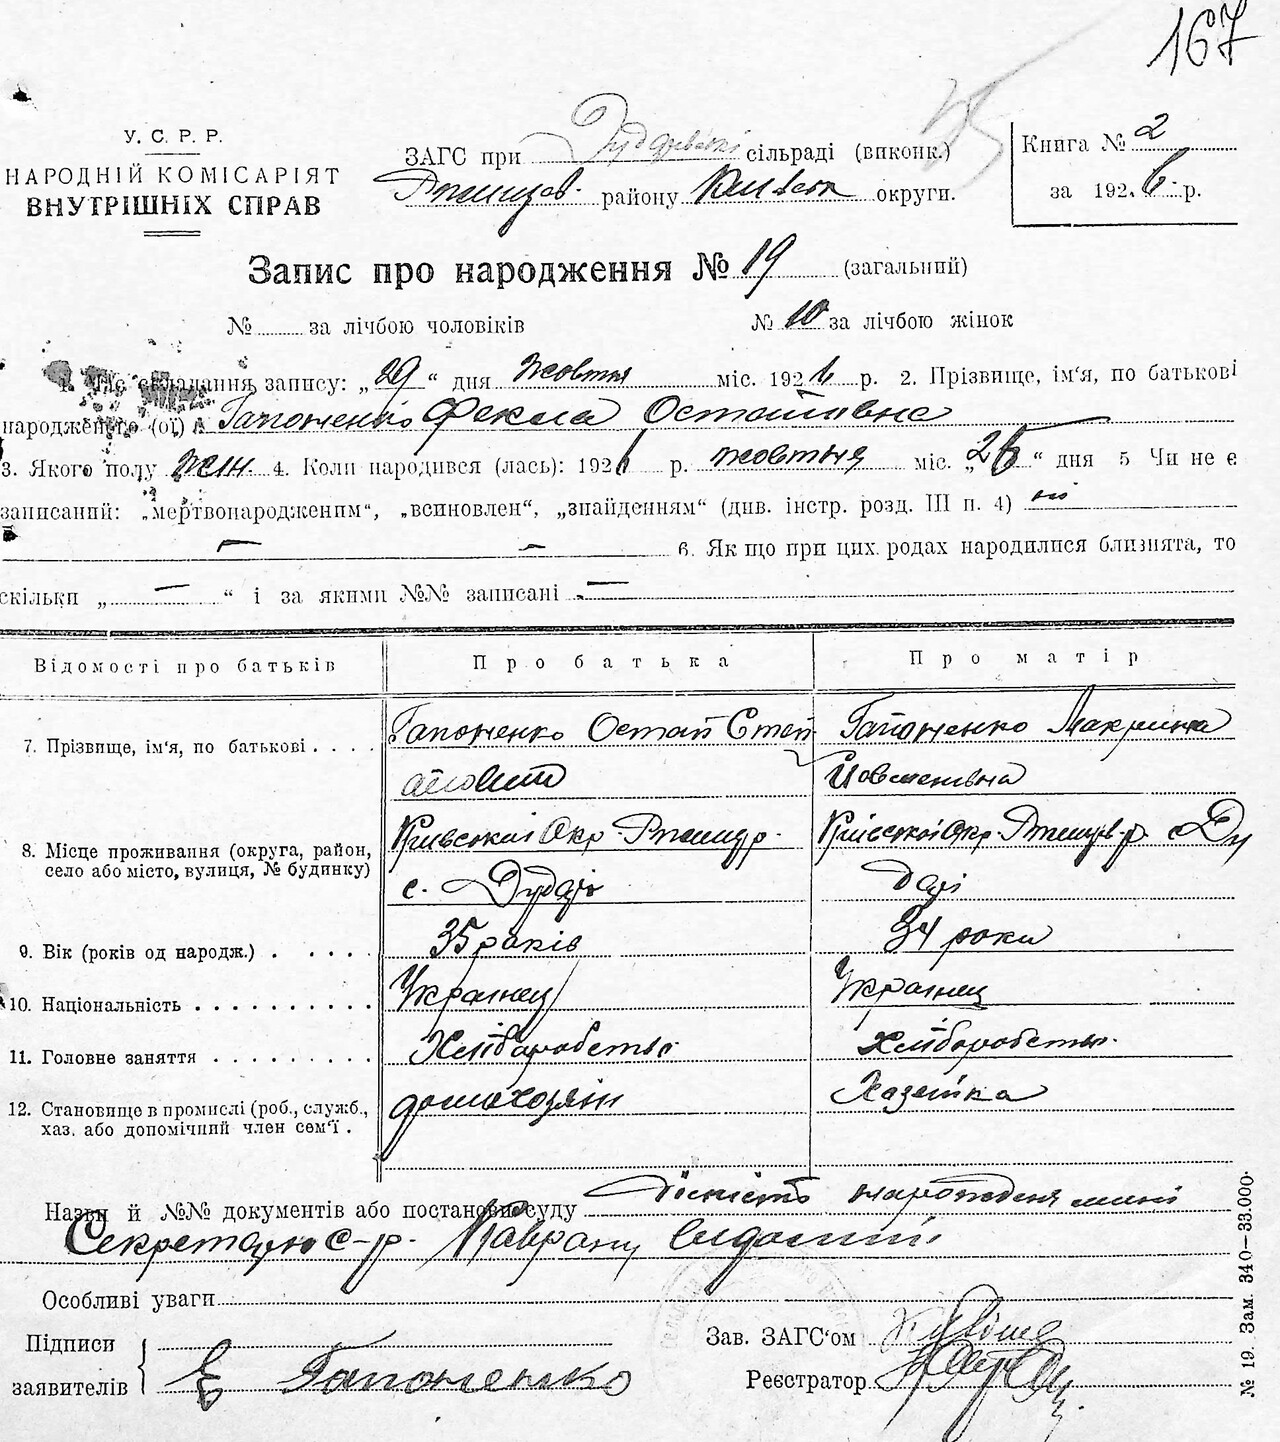 167
У. С. Р. Р.
НАРОДНІЙ КОМІСАРІЯТ
ВНУТРІШНІХ СПРАВ
ЗАГС при сільраді (виконк.)
Ржищев. району Київськ округи.
Книга № 2
за 1926 р.
Запис про народження № 19 (загальний)
№ за лічбою чоловіків № 10 за лічбою жінок
1. складання запису: „29“ дня жовтня міс. 1926 р. 2. Прізвище, ім'я, по батькові
народженого (ої) Гапоненко Фекла Остапівна
3. Якого полу жін 4. Коли народився (лась): 1926 р. жовтня міс. „26“ дня 5 Чи не є
записаний: „мертвонародженим“, „всиновлен“, „знайденям“ (див. інстр. розд. III п. 4) ні
— — 6. Як що при цих родах народилися близнята, то
скільки „ — “ і за якими №№ записані —
Відомості про батьків Про батька Про матір
7. Прізвище, ім'я, по батькові . . . . Гапоненко Остап Степ Гапоненко Макрина
анович
8. Місце проживання (округа, район, село або місто, вулиця, № будинку) Київської Окр. Київської Окр. Ржищев. р. с Ду
с. Дударі дарі
9. Вік (років од народж.) . . . . . 35 років 34 роки
10. Національність . . . . . . . . . . Українец Українец
11. Головне заняття . . . . . . . . . Хліборобство Хліборобство
12. Становище в промислі (роб., служб., хаз. або допомічний член сем'ї . домохозяїн Хазяйка
Назви й №№ документів або постанови суду дійсність народження мині
Секретарю с-р. відомий
Особливі уваги
Підписи
заявителів Гапоненко
Зав. ЗАГС'ом
Реєстратор
№ 19. Зам. 340—33.000.